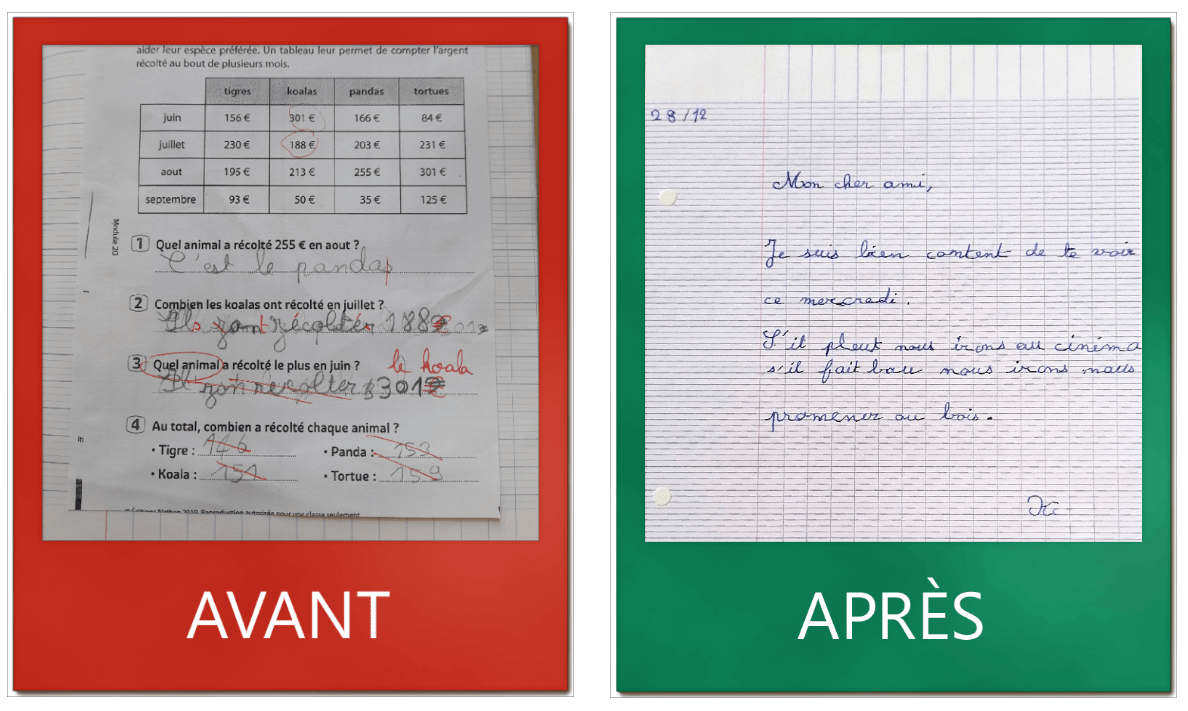 aider leur espèce préférée. Un tableau leur permet de compter l'argent
récolté au bout de plusieurs mois.
tigres koalas pandas tortues
juin 156 € 301 € 166 € 84 €
juillet 230 € 188 € 203 € 231 €
aout 195 € 213 € 255 € 301 €
septembre 93 € 50 € 35 € 125 €
Module 20
1 Quel animal a récolté 255 € en aout ?
C'est le pandas
2 Combien les koalas ont récolté en juillet ?
Ils zont récolter 188€
3 Quel animal a récolté le plus en juin ?
le koala
Il zont recolter 301€
4 Au total, combien a récolté chaque animal ?
• Tigre : 146 • Panda : 152
• Koala : 151 • Tortue : 159
Nathan 2019. Reproduction autorisée pour une classe seulement
AVANT
28/12
Mon cher ami,
Je suis bien content de te voir
ce mercradi.
S'it pleut nous irons au cinéma
s'il fait bau nous irons naus
promener au bois.
APRÈS